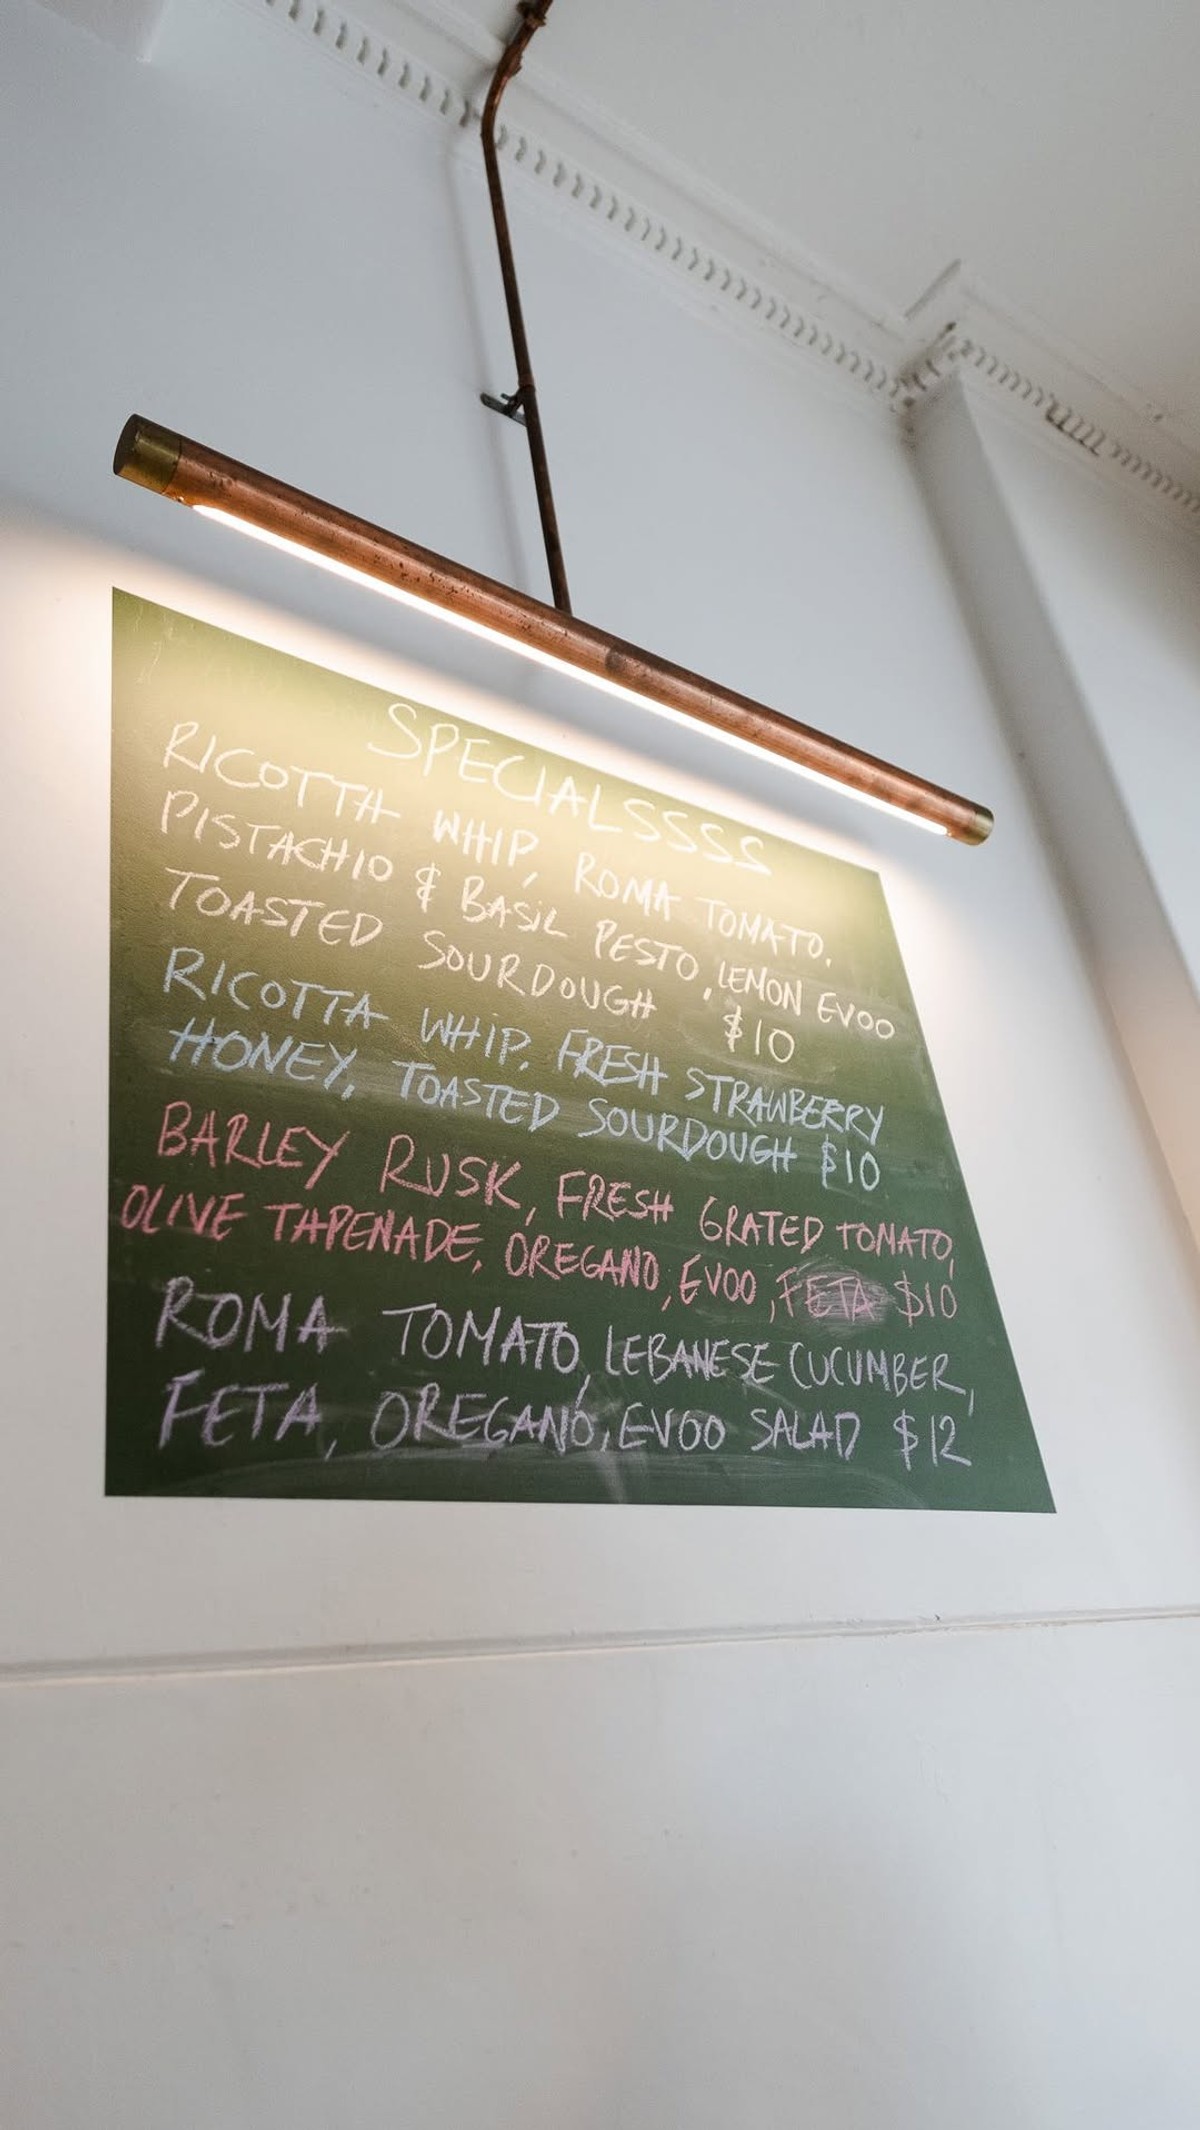 SPECIALSSSS
RICOTTA WHIP, ROMA TOMATO.
PISTACHIO & BASIL PESTO, LEMON EVOO
TOASTED SOURDOUGH $10
RICOTTA WHIP. FRESH STRAWBERRY
HONEY, TOASTED SOURDOUGH $10
BARLEY RUSK, FRESH GRATED TOMATO,
OLIVE TAPENADE, OREGANO, EVOO, FETA $10
ROMA TOMATO, LEBANESE CUCUMBER,
FETA, OREGANO, EVOO SALAD $12